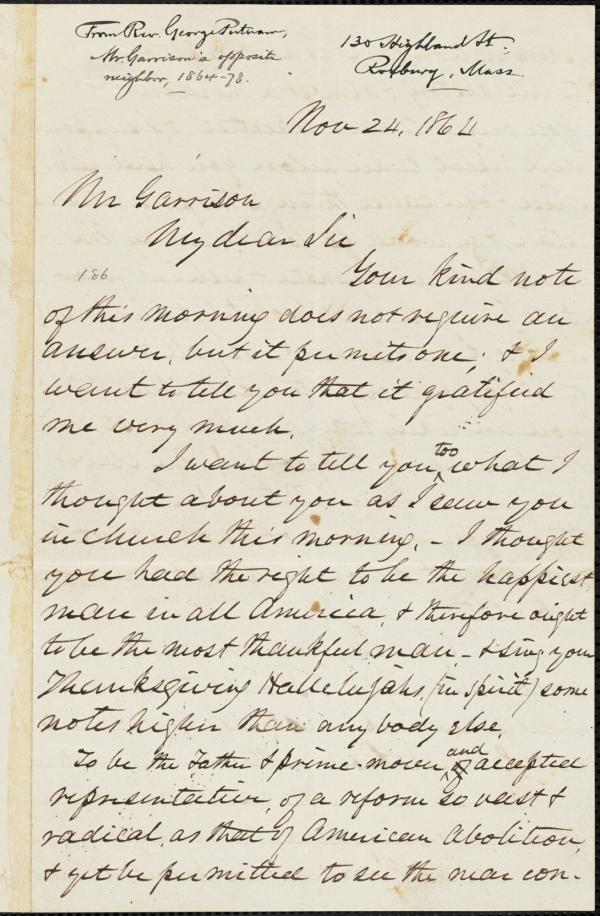 From Rev. George Putnam,
Mr. Garrison's opposite
neighbor, 1864-78.
130 Highland St.
Roxbury, Mass.
Nov 24, 1864
Mr Garrison
My dear Sir
186
Your kind note
of this morning does not require an
answer, but it permits one; & I
want to tell you that it gratified
me very much.
I want to tell you, too, what I
thought about you as I saw you
in church this morning. - I thought
you had the right to be the happiest
man in all America, & therefore ought
to be the most thankful man - & sing your
Thanksgiving Hallelujahs, (in spirit) some
notes higher than any body else.
To be the Father & prime-mover and accepted
representative, of a reform so vast &
radical, as that of American Abolition,
& yet be permitted to see the near con-